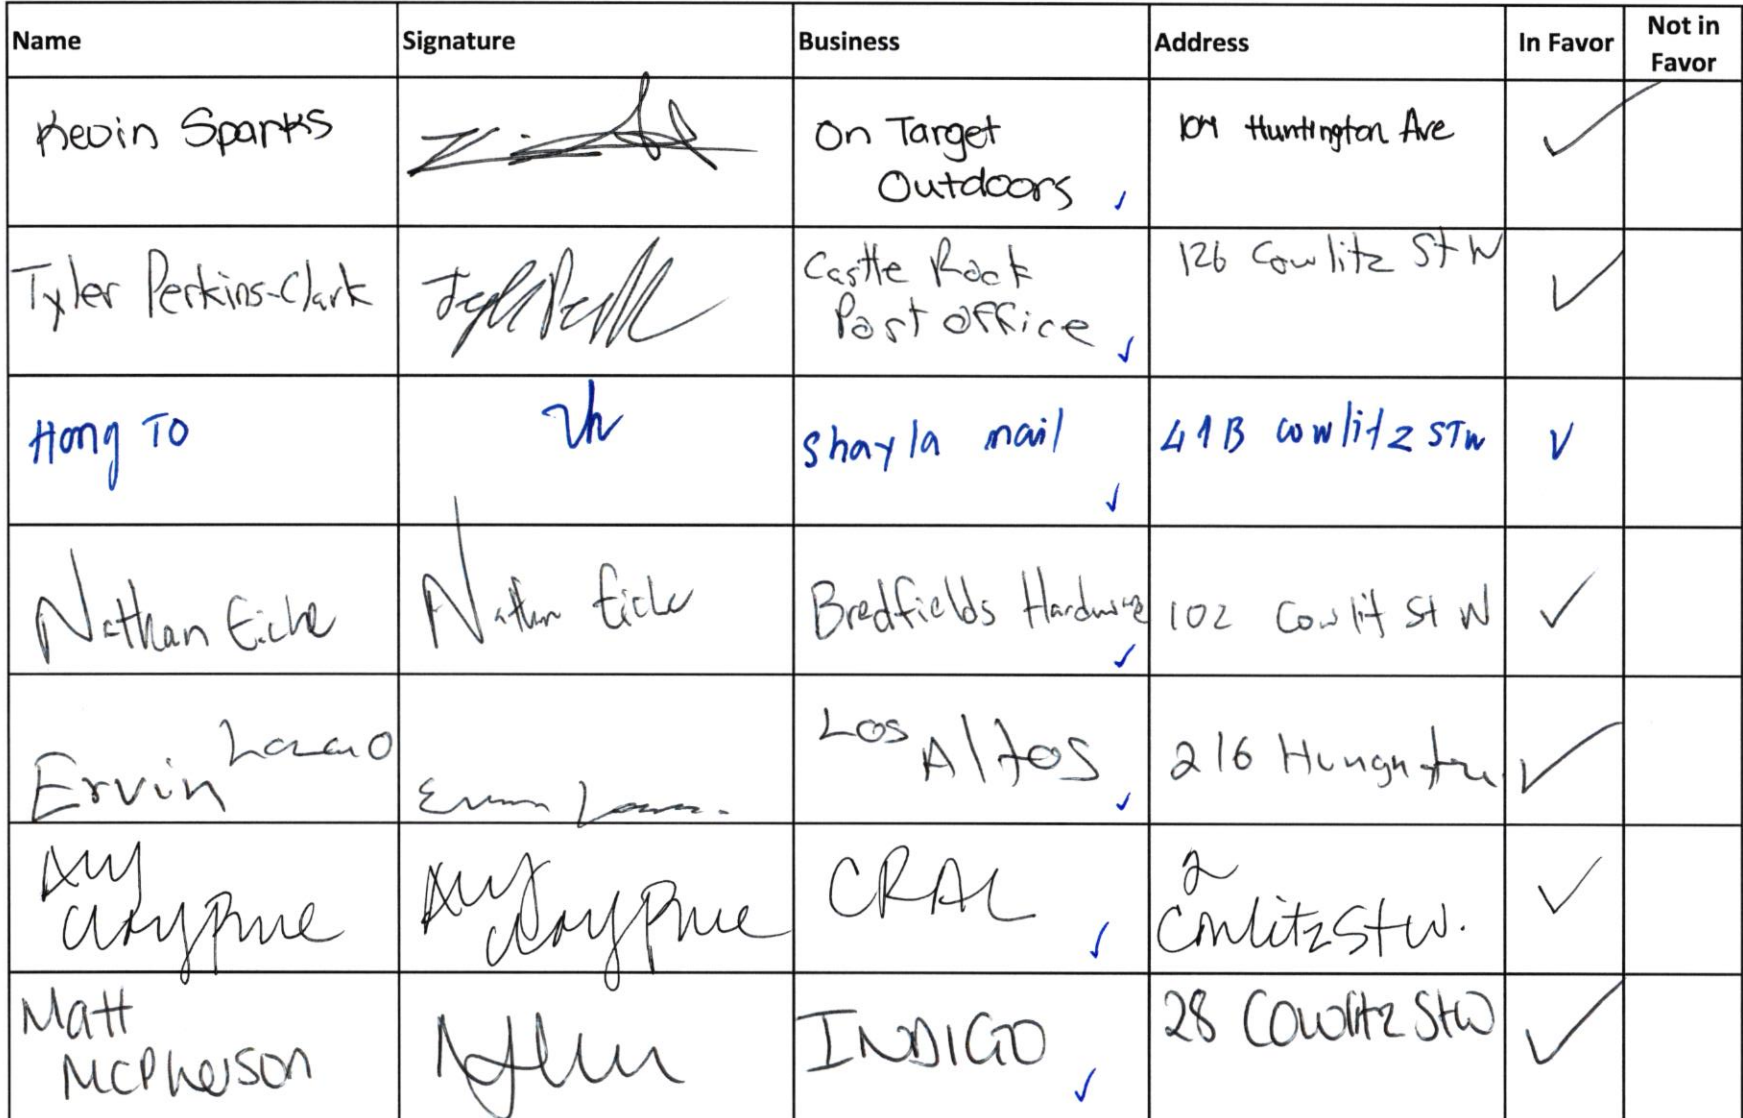 Name Signature Business Address In Favor Not in Favor
Kevin Sparks On Target Outdoors 104 Huntington Ave ✓
Tyler Perkins-Clark Castle Rock Post Office 126 Cowlitz St W ✓
Hong TO Shayla nail 41B cowlitz STW ✓
Nathan Eiche Nathan Eiche Bredfields Hardware 102 Cowlit St W ✓
Ervin Los Altos 216 ✓
CRAL 2 Cowlitz St W. ✓
Matt McPherson INDIGO 28 Cowlitz St W ✓